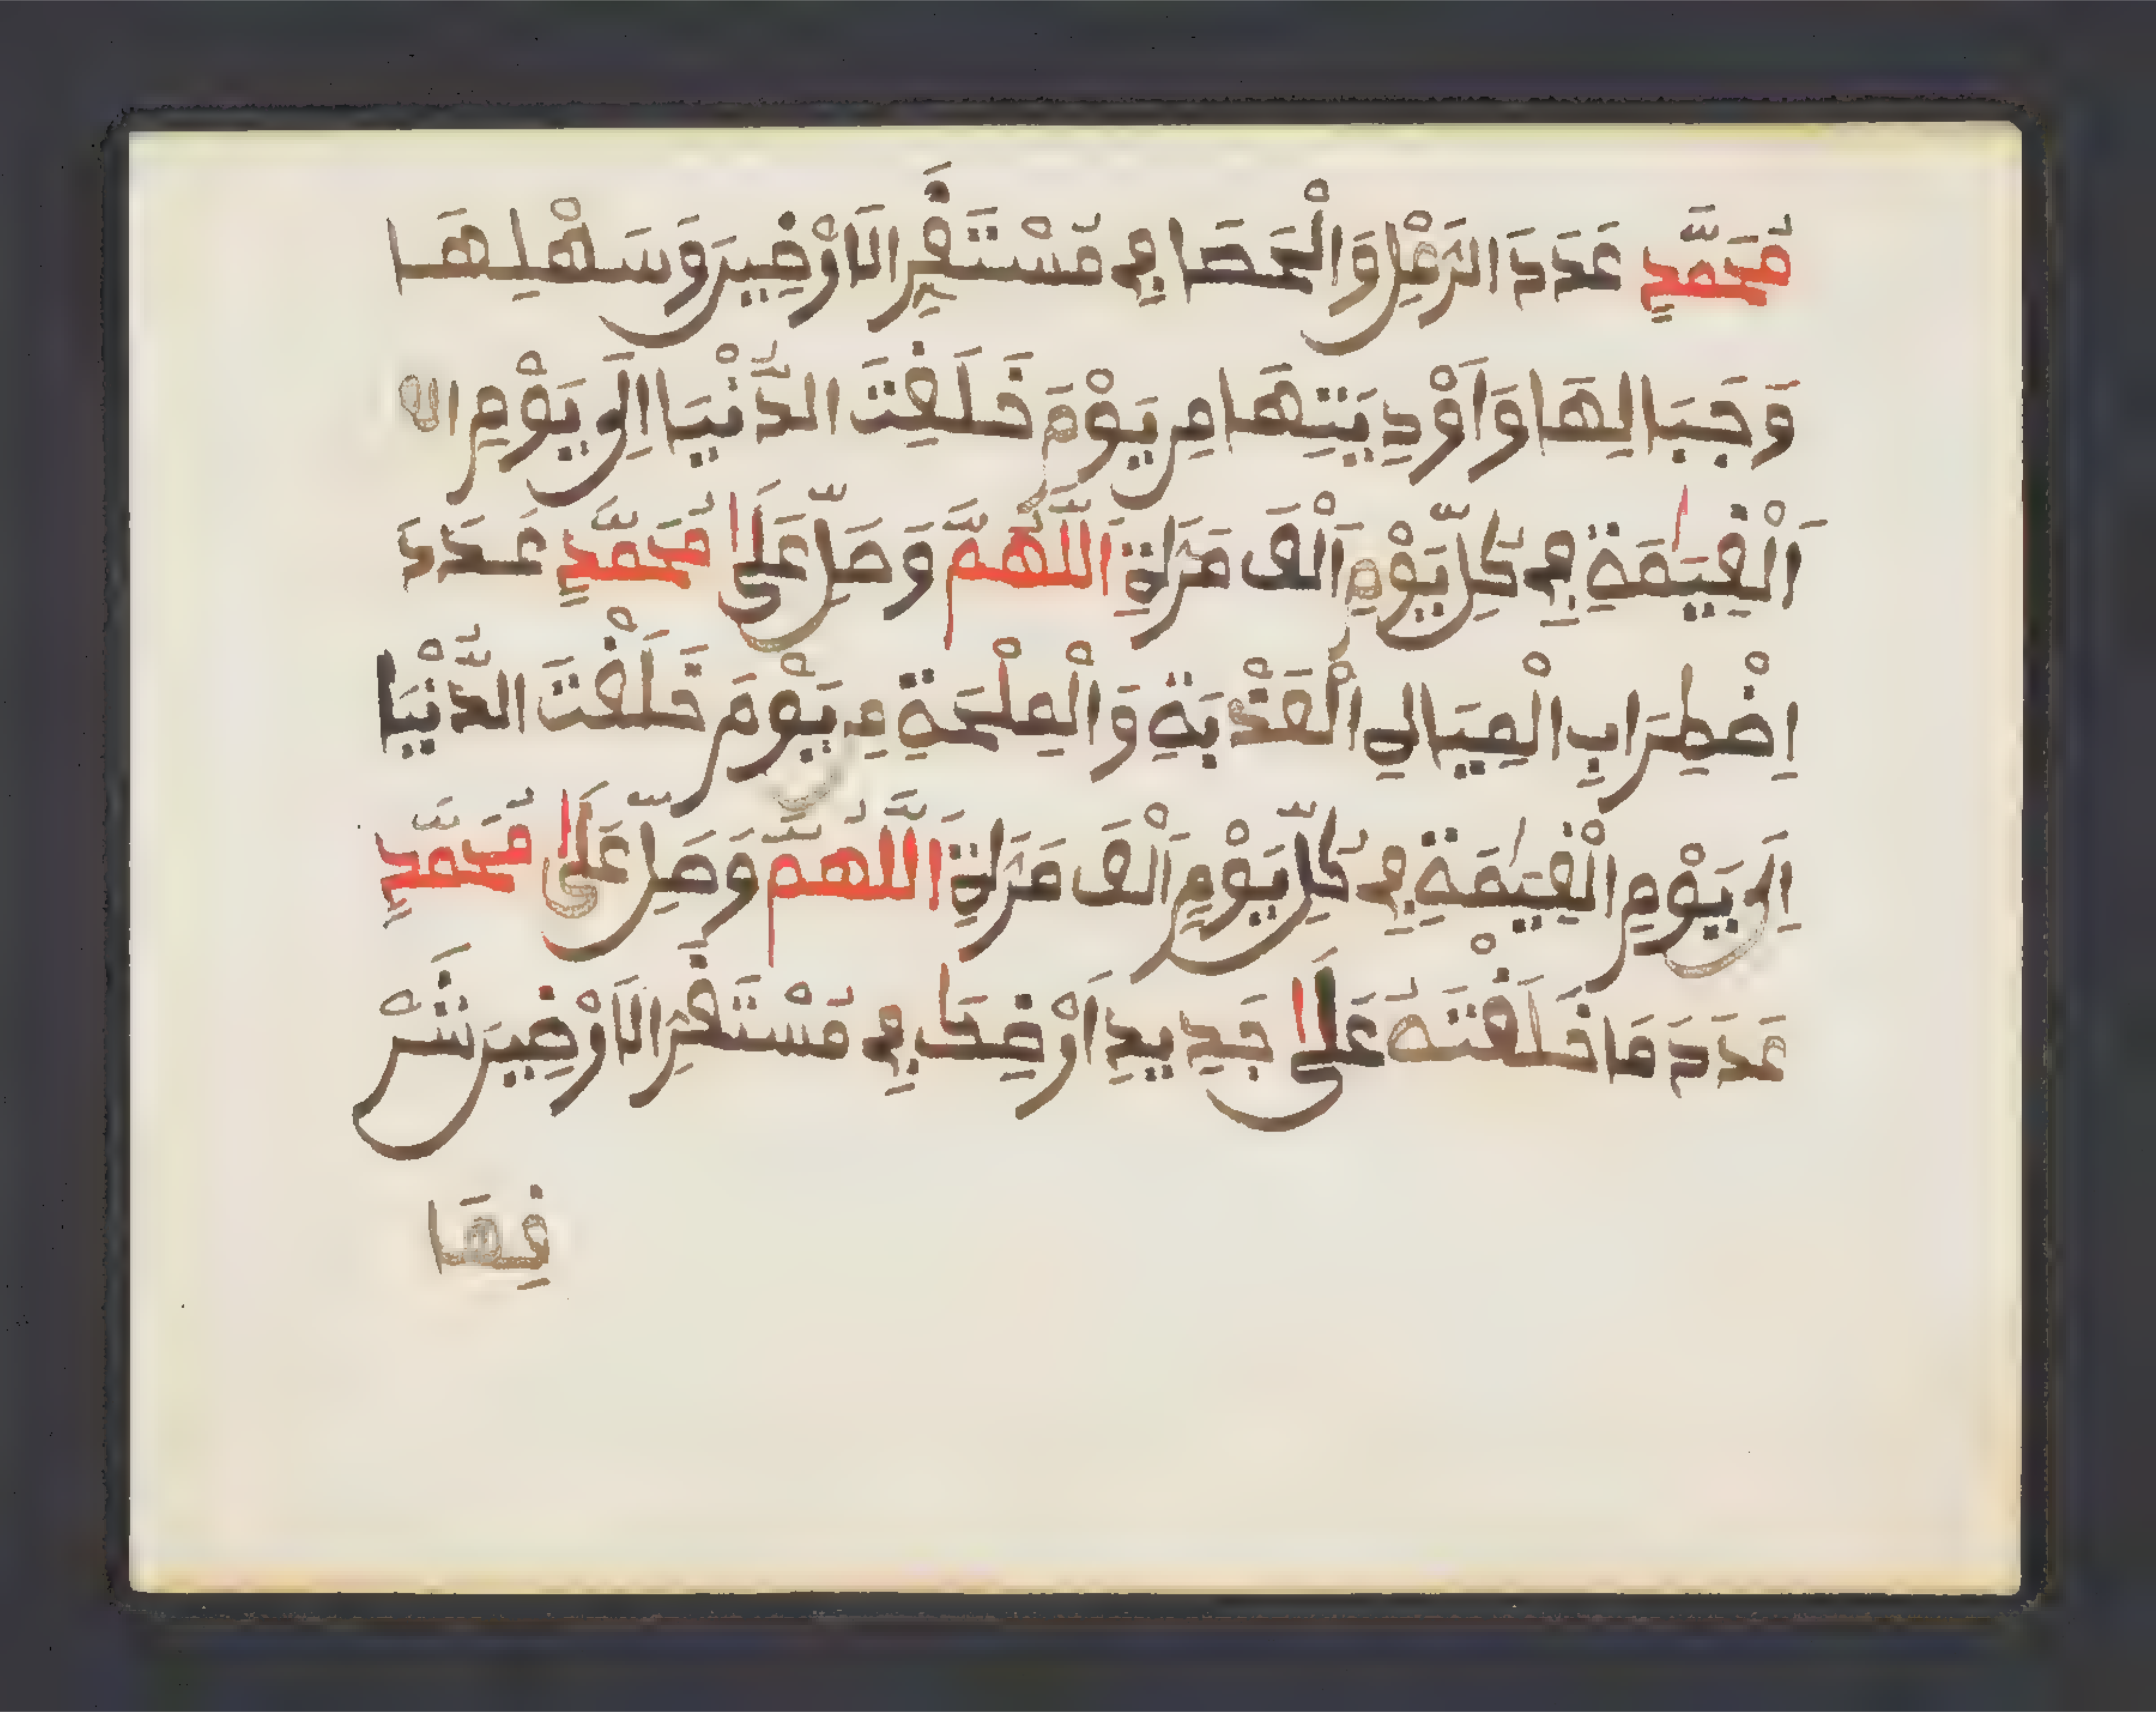 مُحَمَّدٍ عَدَدَ الرَّمْلِ وَالْحَصَا فِي مُسْتَقَرِّ الَارْضِينَ وَسَهْلِهَا
وَجِبَالِهَا وَأَوْدِيَتِهَا مِن يَوْمَ خَلَقْتَ الدُّنْيَا إِلَى يَوْمِ
الْقِيَٰمَةِ فِي كُلِّ يَوْمٍ أَلْفَ مَرَّةٍ اَللَّهُمَّ وَصَلِّ عَلَىٰ مُحَمَّدٍ عَدَدَ
اِضْطِرَابِ الْمِيَاهِ الْعَذْبَةِ وَالْمِلْحَةِ مِن يَوْمَ خَلَقْتَ الدُّنْيَا
إِلَى يَوْمِ الْقِيَٰمَةِ فِي كُلِّ يَوْمٍ أَلْفَ مَرَّةٍ اَللَّهُمَّ وَصَلِّ عَلَىٰ مُحَمَّدٍ
عَدَدَ مَا خَلَقْتَهُ عَلَىٰ جَدِيدِ أَرْضِكَ فِي مُسْتَقَرِّ الَارْضِينَ شَرْ
قِهَا